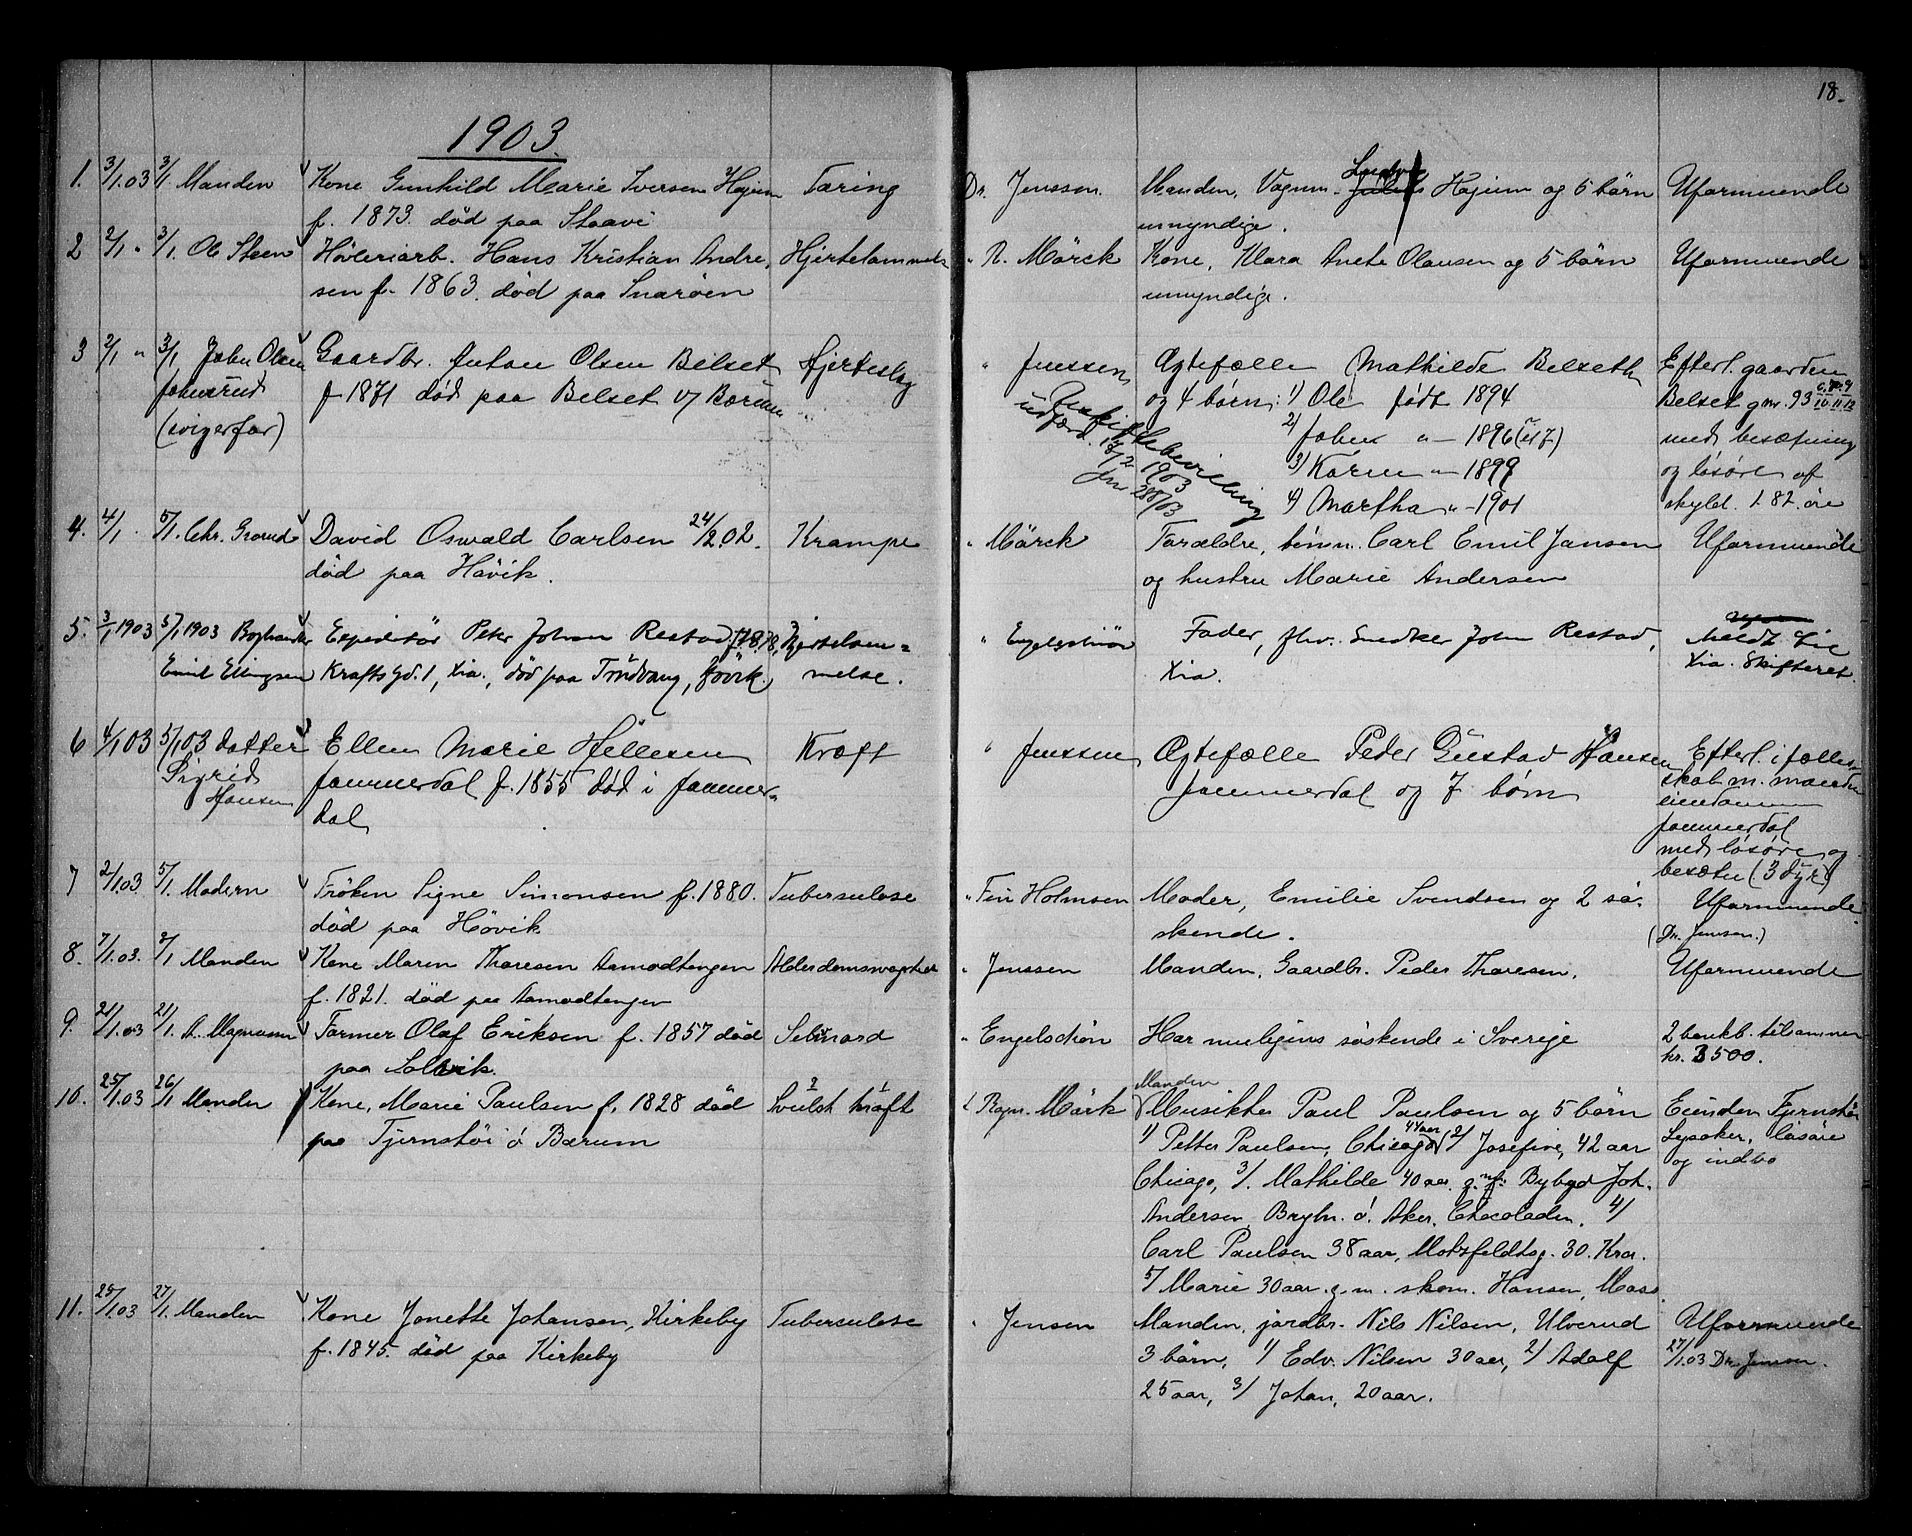 18.
1903
1. 3/1.03 3/1 Manden Kone Gunhild Marie Iversen Hajum Tæring Dr. Jenssen. Manden, Vognm. Ludvig Hajum og 6 börn Uformuende
f. 1873. död paa Staavi umyndige.
2 2/1 " 3/1. Ol. Steen Høvleriarb. Hans Kristian Andre, Hjertelammelse " R. Mörck Kone, Klara Anete Olausen og 5 börn Uformuende
sen f. 1863. död paa Snaröen umyndige.
3 2/1 " 3/1 John Olsen Gaardbr. Anton Olsen Belset Hjerteslag " Jenssen Ægtefælle Mathilde Belseth Efterl. gaarden
Johnsrud f 1871 död paa Belset i/ Bærum og 4 børn: 1) Ole født 1894 Belset gnr. 93
(svigerfar) 2/ Johan " - 1896 med besætning
3) Karen " - 1899 og løsøre af
4) Martha " - 1901 skyld. 1.82. øre
Uskiftebevilling
udfærd. 13/2 1903
Jnr 288/03
4. 4/1 . 5/1. Chr. Grorud David Oswald Carlsen 24/2.02. Krampe " Mörck Forældre, Carl Emil Jansen Uformuende
död paa Hövik. og hustru Marie Andersen
5. 3/1 1903 5/1 1903 Boghandler Expeditør Peter Johan Restad, f. 1878, Hjertelam= " Engelschiøn Fader, fhv. Snedker John Restad, Meldt Lie
Emil Ellingsen Krafts Gd. 1, Xia., död paa Tröndvang, Hövik. melse. Xia. Xia. Skifteret.
6 4/1 03 5/1 03 datter Ellen Marie Hellesen Kræft " Jenssen Ægtefælle Peder Gustad Hansen Efterl. i fælles-
Sigrid Jammerdal f. 1855 död i Jammer- Jammerdal og 7 børn skab m. manden
Hansen dal eiendommen
Jammerdal
med løsøre og
besætn (3 dyr)
7 2/1.03. 5/1. Modern Fröken Signe Simonsen f. 1880. Tuberculose " Fin Holmsen Moder, Emilie Svendsen og 2 sö- Uformuende
död paa Hövik skende. (Dr. Jenssen.)
8. 7/1.03. 9/1 Manden Kone Maren Thoresen Aamodtengen Alderdomssvaghed " Jenssen Manden, Gaardbr. Peder Thoresen. Uformuende
f. 1821. död paa Aamodtengen
9. 21/1.03 21/1. A. Magnussen Farmer Olaf Eriksen f. 1857 död Selvmord " Engelschiön Har muligens söskende i Sverige 2 bankb. tilsammen
paa Solvik. kr. 3500.
10. 25/1.03 26/1 Manden Kone, Marie Paulsen f. 1828 död Svulst kræft Ragn. Mörk Manden Musikter Paul Paulsen og 5 börn Eiendom Fjernstöi
paa Fjernstöi i Bærum 1/ Petter Paulsen, Chicago 44 aar 2/ Josefine, 42 aar Lysaker, løsøre
Chicago, 3/. Mathilde 40 aar. g. m. f. Bybud Joh. og indbo
Andersen, Brybn. i Aker. Chocoladen. 4/
Carl Paulsen 38 aar, Motzfeldtsg. 30. Kra.
5/ Marie 30 aar. g. m. skom. Hansen, Moss.
11. 25/1.03 27/1. Manden Kone Jonette Johansen, Kirkeby Tuberculose " Jensen Manden, jordbr. Nils Nilsen, Ulverud Uformuende
f. 1845. död paa Kirkeby 3 börn, 1/ Edv. Nilsen 30 aar, 2/ Adolf 27/1.03 Dr. Jensen.
25 aar, 3/ Johan, 20 aar.